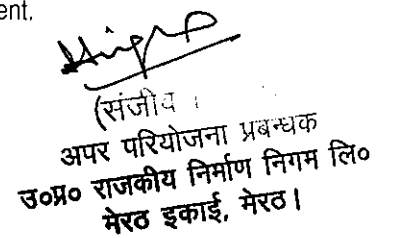 ent.
(संजीव
अपर परियोजना प्रबन्धक
उ०प्र० राजकीय निर्माण निगम लि०
मेरठ इकाई, मेरठ।